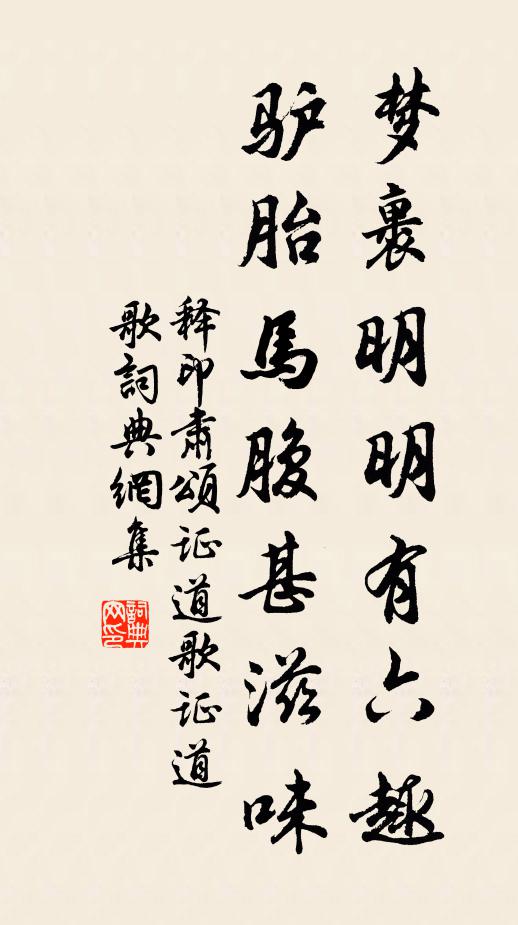 梦裏明明有六趣
驴胎馬腹甚滋味
释印肃頌证道歌证道
歌詞典網集
詞典网印